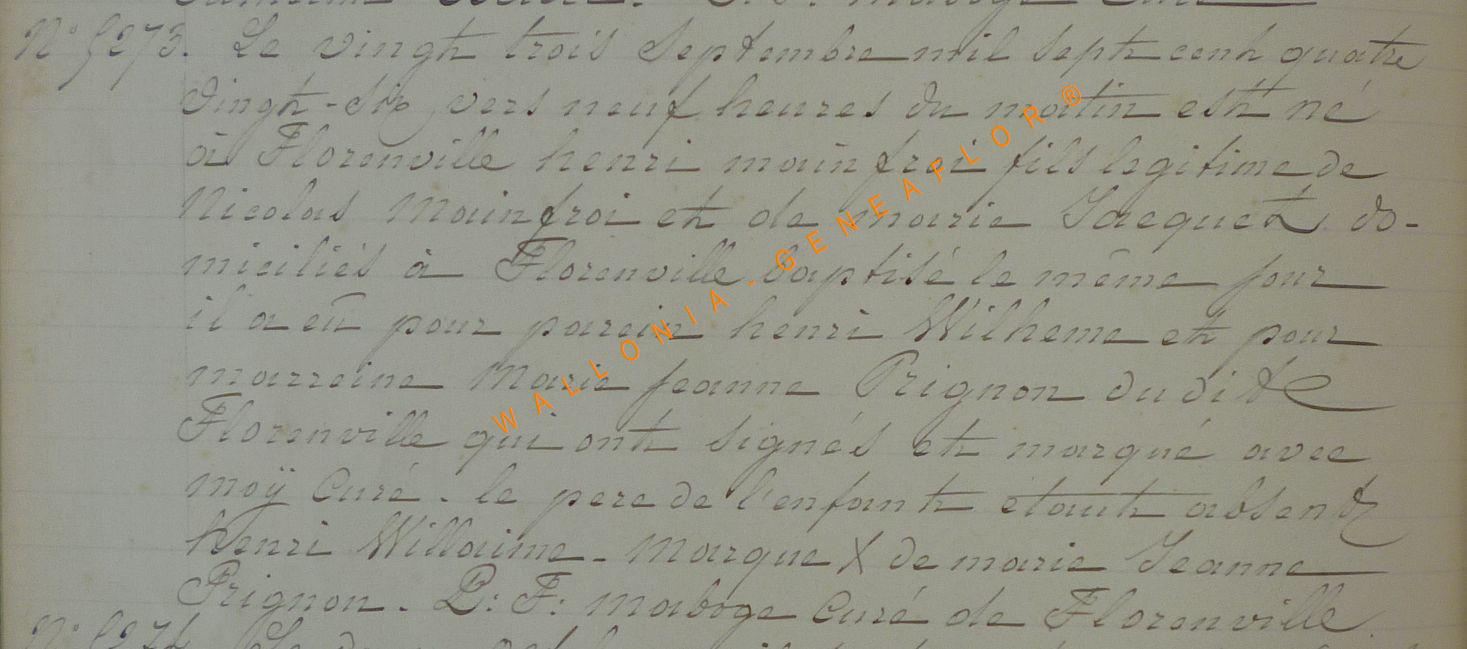 maboge Curé
N° 5273. Le vingt trois Septembre mil sept cent quatre
vingt-six vers neuf heures du matin est né
à Florenville henri mainfroi fils legitime de
Nicolas Mainfroi et de marie Jacquet do-
miciliés à Florenville baptisé le même jour
il a eu pour parein henri Wilheme et pour
marreine Marie jeanne Prignon du dit
Florenville qui ont signés et marqué avec
moÿ Curé. le pere de l'enfant étant absent
henri Willaime. Marque X de marie Jeanne
Prignon. P: F: maboge Curé de Florenville.
N° 5274
WALLONIA - GENEAFLOR ®